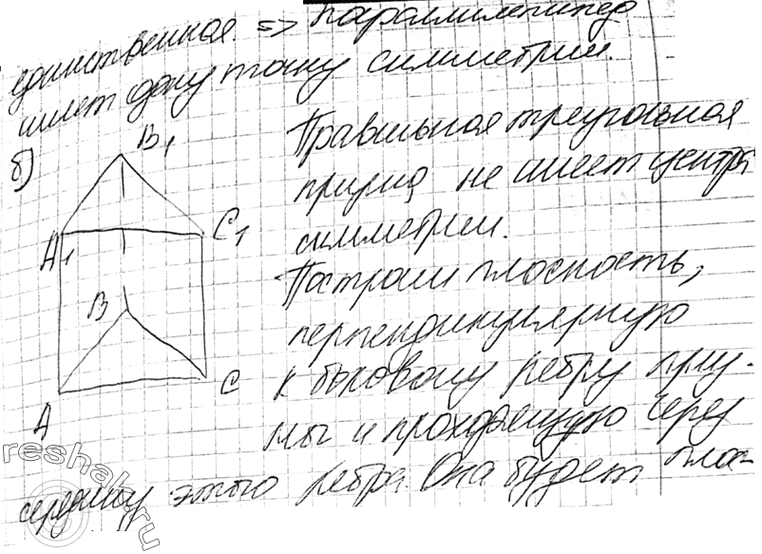 единственная => параллелепипед
имеет одну точку симметрии.
б)
B₁
Правильная треугольная
призма не имеет центра
A₁
C₁
симметрии.
Построим плоскость,
B
перпендикулярную
к боковому ребру приз-
C
A
мы и проходящую через
середину этого ребра. Она будет плос-
reshak.ru